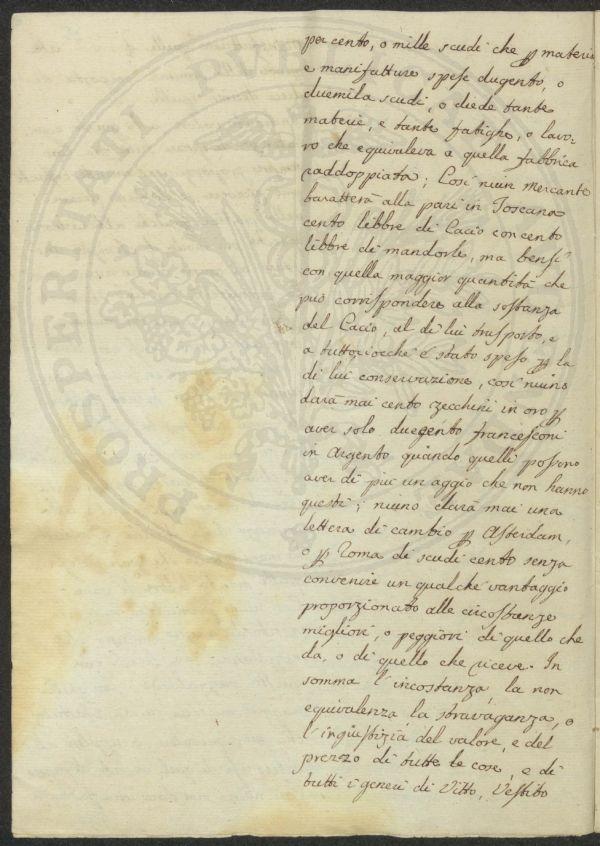 per cento, o mille scudi che ꝑ materie
e manifatture spese dugento, o
duemila scudi, o diede tante
materie, e tante fatighe, o lavo-
ro che equivaleva a quella fabbrica
raddoppiata; Così niun Mercante
baratterà alla pari in Toscana
cento libbre di Cacio con cento
libbre di mandorle, ma bensì
con quella maggior quantità che
può corrispondere alla sostanza
del Cacio, al di lui trasporto, e
a tuttociocchè è stato speso ꝑ la
di lui conservazione, così niuno
darà mai cento zecchini in oro ꝑ
aver solo duegento francesconi
in Argento quando quelli possono
aver di più un aggio che non hanno
questi; niuno darà mai una
lettera di cambio ꝑ Asterdam,
o ꝑ Roma di scudi cento senza
convenire un qualche vantaggio
proporzionato alle circostanze
migliori, o peggiori di quello che
da, o di quello che riceve. In
somma l'incostanza, la non
equivalenza la stravaganza, o
l'ingiustizia del valore, e del
prezzo di tutte le cose, e di
tutti i generi di Vitto, Vestito
PROSPERITATI PVB